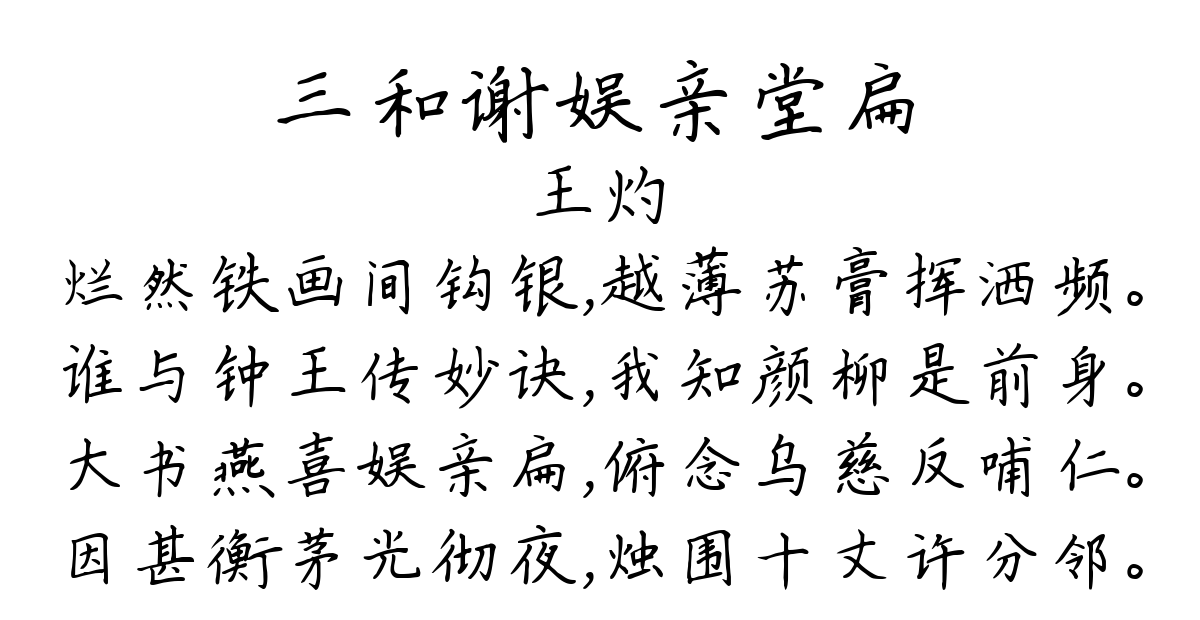 三和谢娱亲堂扁
王灼
烂然铁画间钩银,越薄苏膏挥洒频。
谁与钟王传妙诀,我知颜柳是前身。
大书燕喜娱亲扁,俯念乌慈反哺仁。
因甚衡茅光彻夜,烛围十丈许分邻。